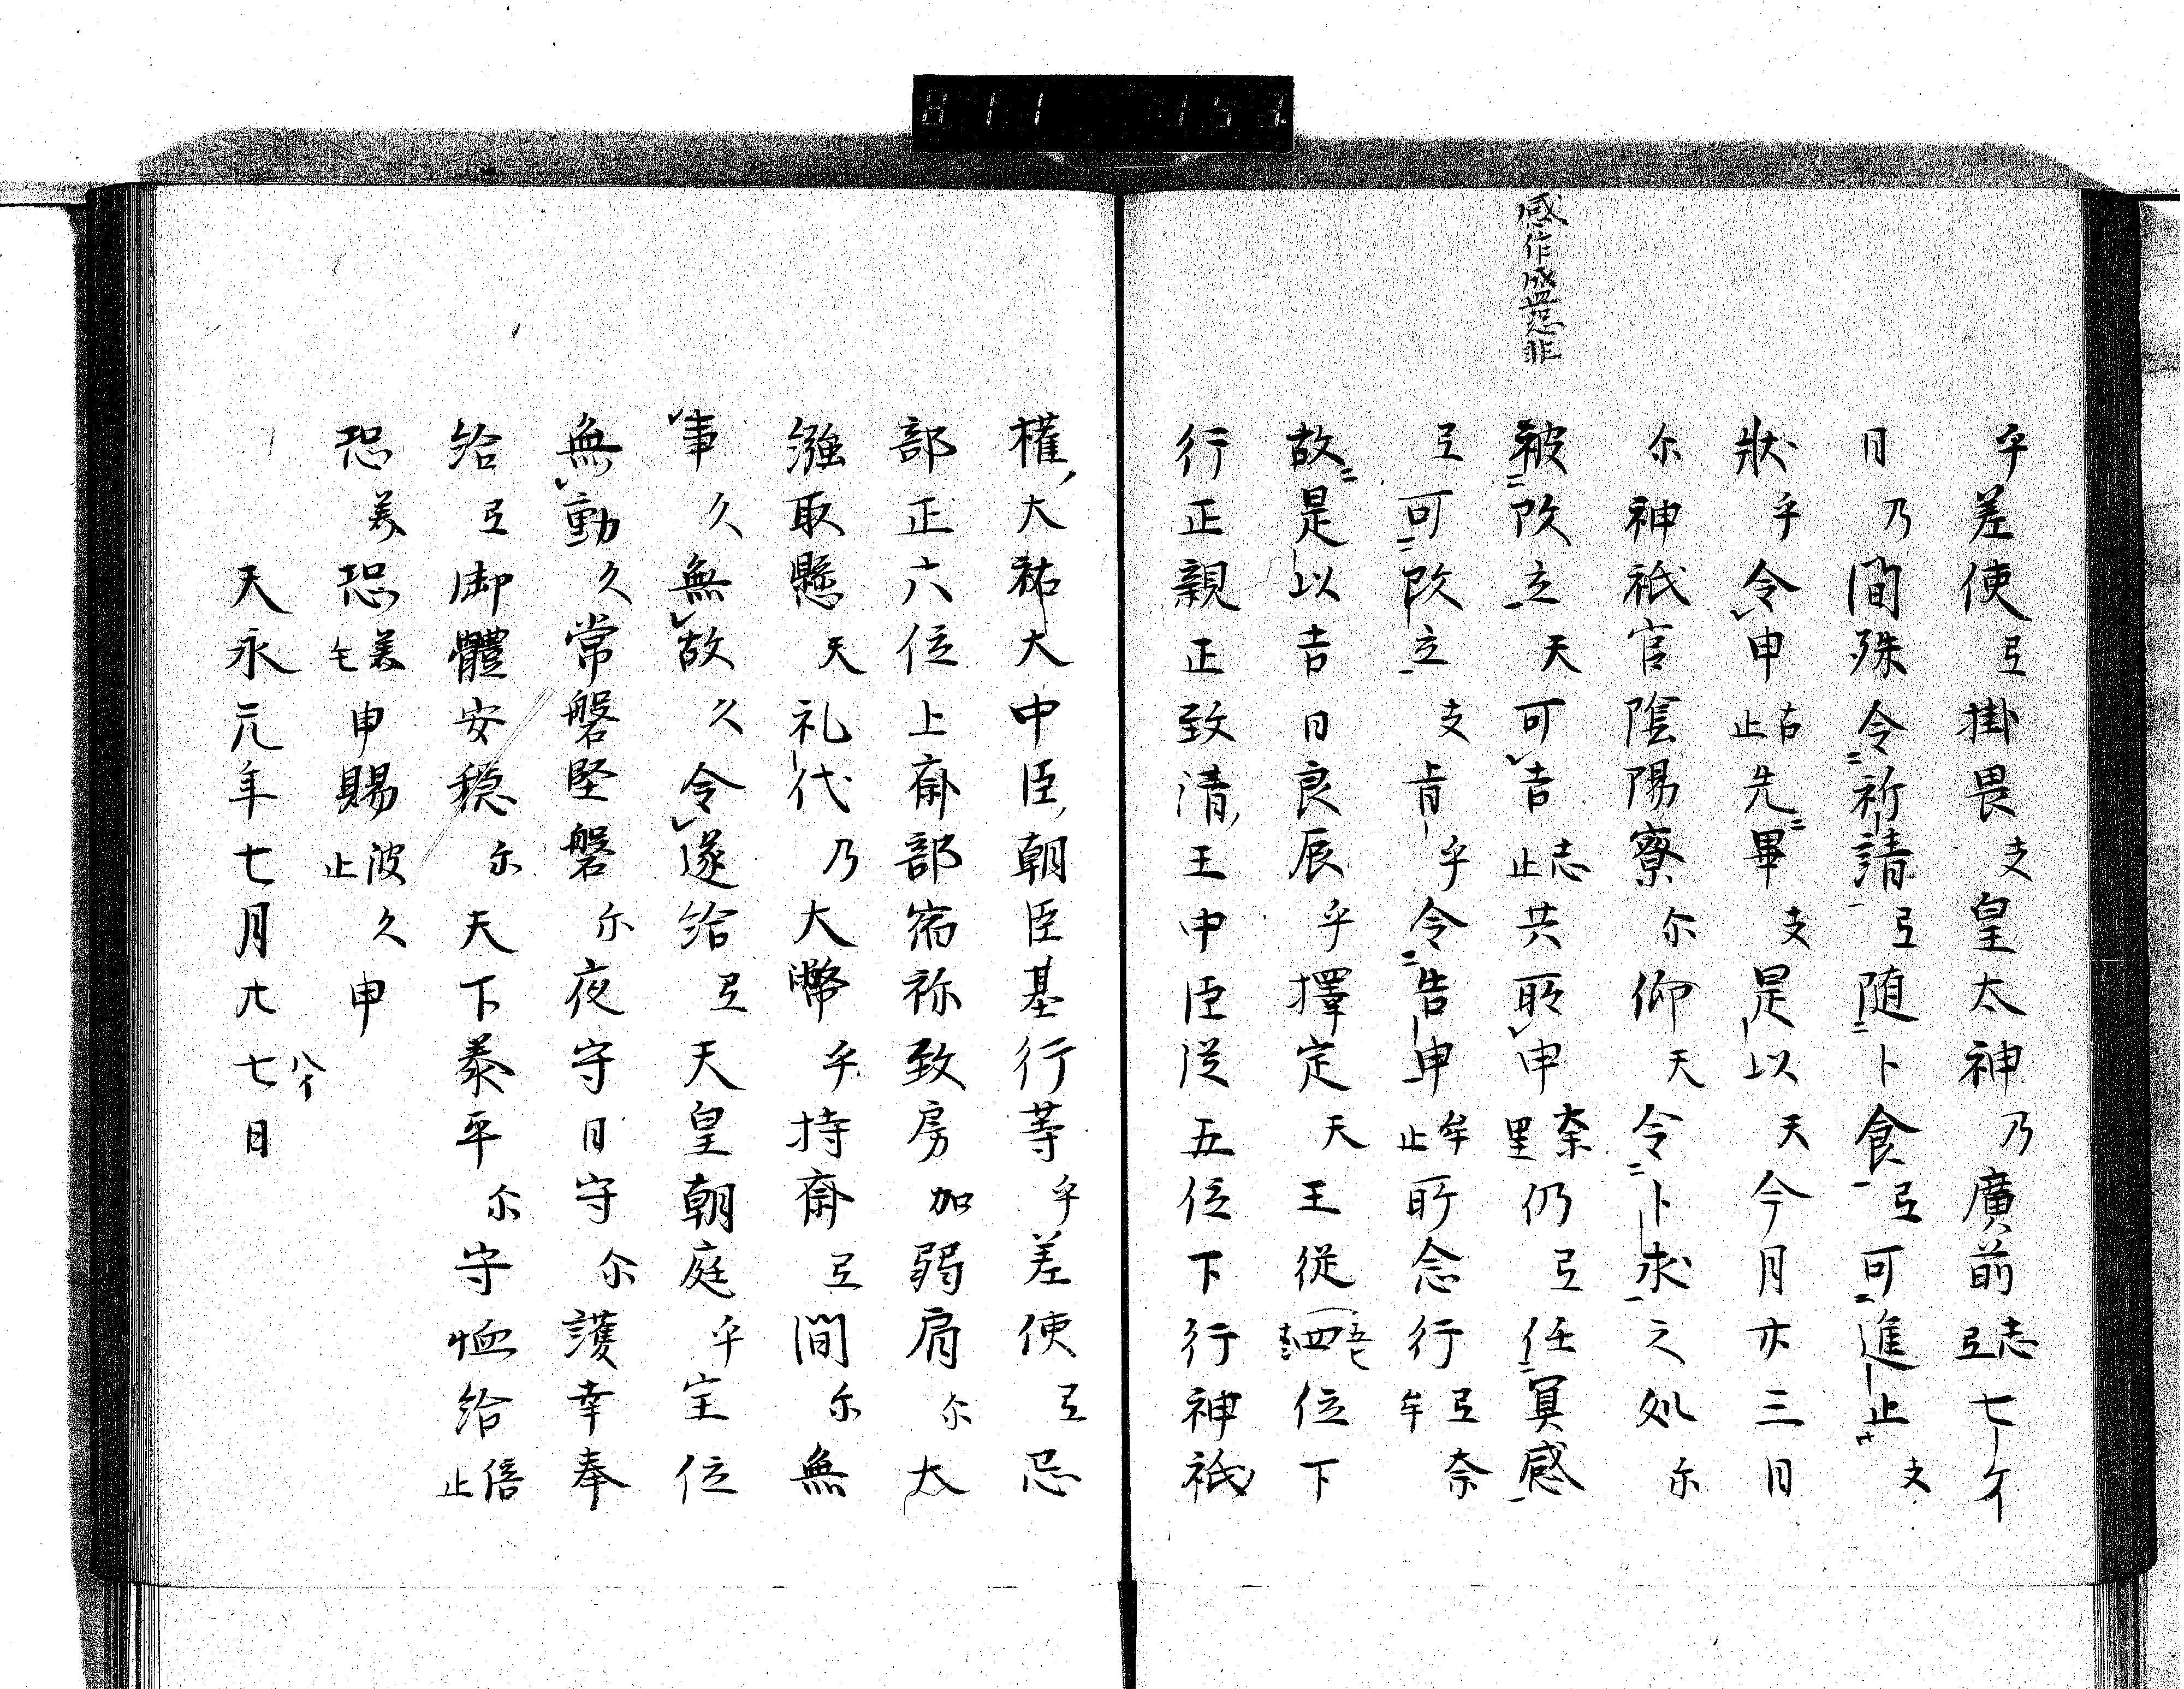 811 153
感作盛恐非
乎差使弖掛畏支皇太神乃廣前志弖七ケ
日乃間殊令祈請弖随卜食弖可進止支
狀乎令申止古先畢支是以天今月亦三日
尓神祇官陰陽寮尓仰天令卜求之処尓
被改立天可吉志止共所申奈里仍弖任冥感
弖可改立支肯乎令告申牟止所念行弖奈牟
故是以吉日良辰乎擇定天王従四位下
行正親正致清王中臣従五位下行神祇
權大祐大中臣朝臣基行等乎差使弖忌
部正六位上齋部宿祢致房加弱肩尓太
繈取懸天礼代乃大幣乎持齋弖間尓無
事久無故久令遂給弖天皇朝庭乎宝位
無動久常磐堅磐尓夜守日守尓護幸奉
給弖御體安穏尓天下泰平尓守恤給倍止
恐美恐美毛申賜波久止申
天永元年七月廿七日
八イ